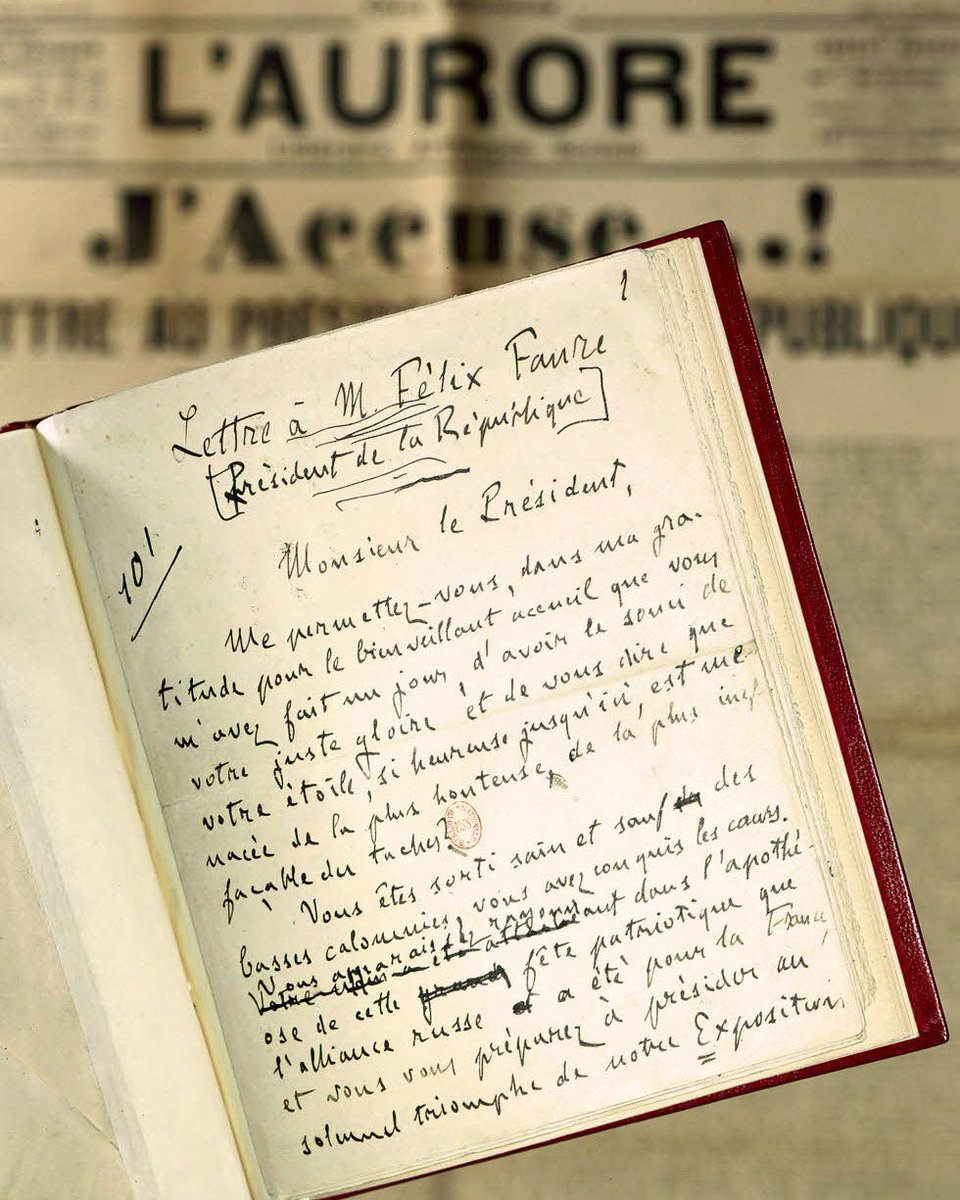 L'AURORE
J'Accuse...!
LETTRE AU PRÉS RÉPUBLIQUE
1
Lettre à M. Félix Faure
[Président de la République]
Monsieur le Président,
10!
Me permettez-vous, dans ma gra-
titude pour le bienveillant accueil que vous
m'avez fait un jour, d'avoir le souci de
votre juste gloire et de vous dire que
votre étoile, si heureuse jusqu'ici, est me-
nacée de la plus honteuse, de la plus inef-
façable des taches?
Vous êtes sorti sain et sauf des
basses calomnies, vous avez conquis les cœurs.
Vous apparaissez rayonnant dans l'apothé-
ose de cette fête patriotique que
l'alliance russe a été pour la France,
et vous vous préparez à présider au
solennel triomphe de notre Exposition